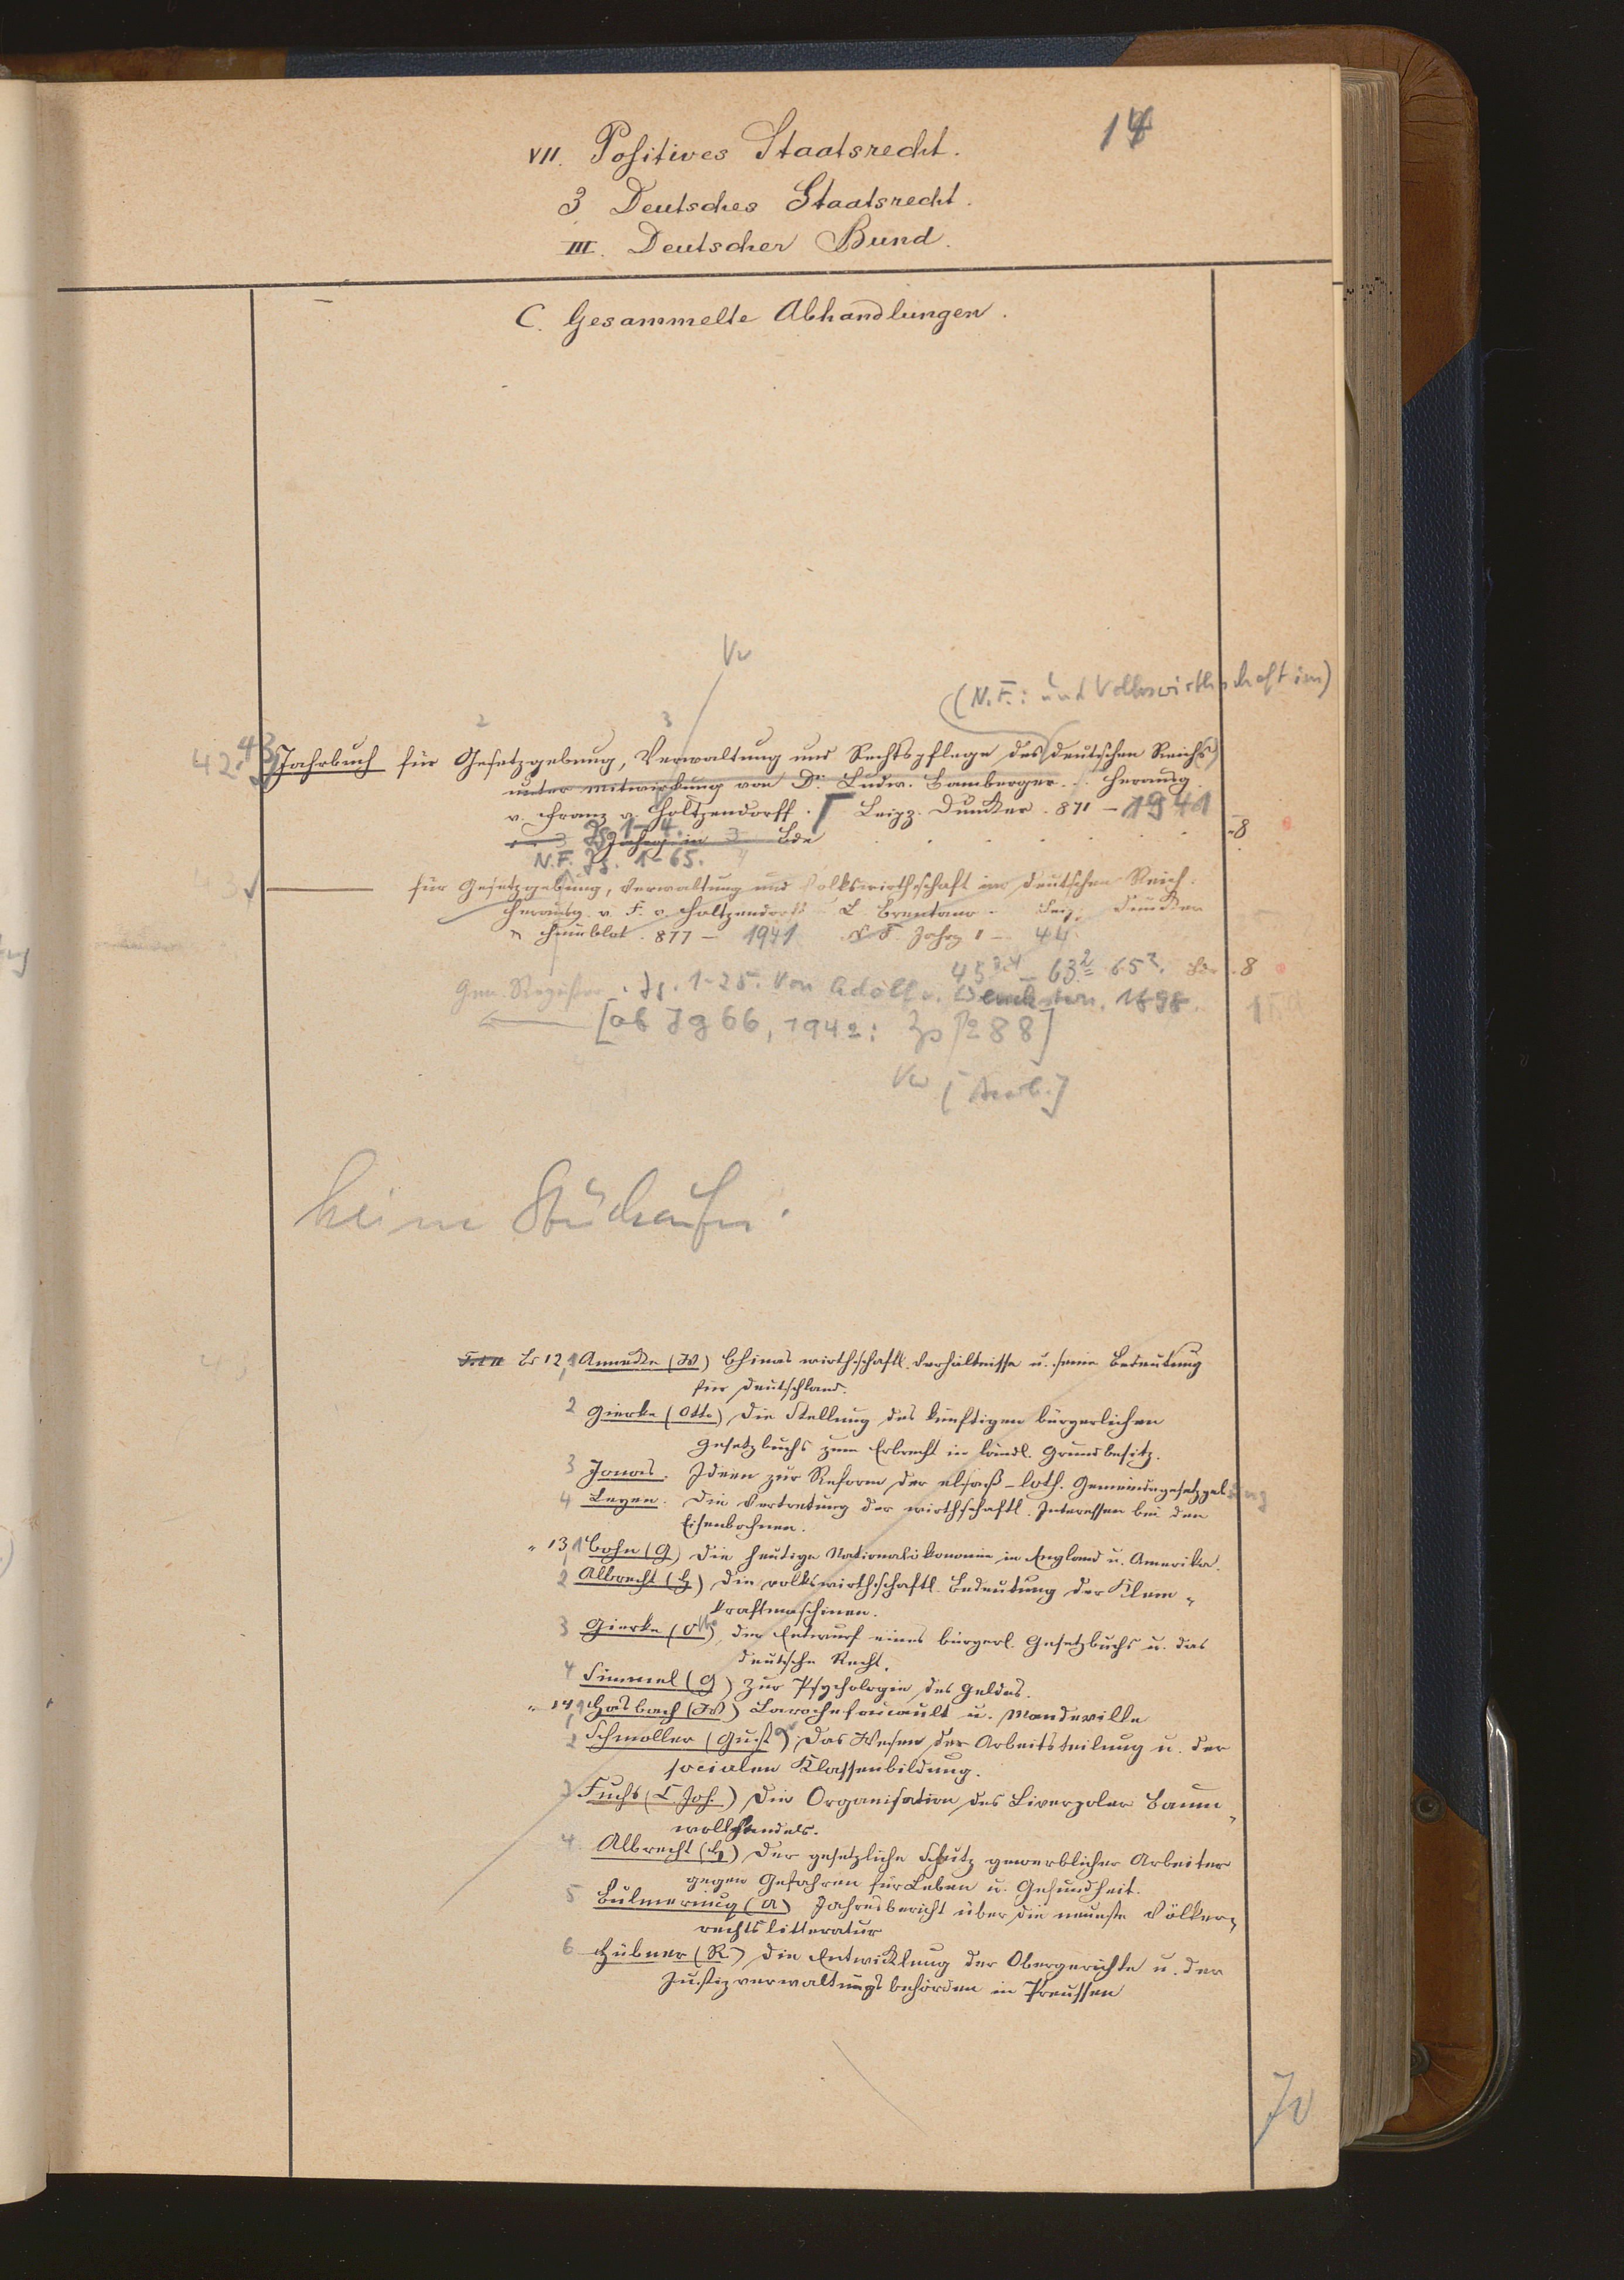 14
VII. Positives Staatsrecht.
3 Deutsches Staatsrecht.
III. Deutscher Bund.
C. Gesammelte Abhandlungen.
Vw
(N.F.: und Volkswirthschaft im)
2 3
42.43 Jahrbuch für Gesetzgebung, Verwaltung und Rechtspflege des deutschen Reichs
unter Mitwirkung von Dr. Ludw. Bamberger... herausg.
v. Franz v. Holtzendorff. Leipz. Duncker. 871 - 1941
Jg 1-4. Bde 8
N.F. Jg. 1-65.
43 für Gesetzgebung, Verwaltung und Volkswirthschaft im deutschen Reich.
Herausg. v. F. v. Holtzendorff L. Brentano - Leipz Duncker
& Humblot. 877 - 1941 N F. Jahrg 1 - 44
45 - 63,2 65,2. Bde 8
Gen. Register. Jg. 1-25. Von Adolf v. 1898.
[ab Jg 66, 1942: Zs 288]
Vw
keine
Bd 12,1 Annecke (W) Chinas wirthschaftl. Verhältnisse u. seine Bedeutung
für Deutschland.
2 Gierke (Otto) Die Stellung des künftigen bürgerlichen
Gesetzbuchs zum Erbrecht in ländl. Grundbesitz.
3 Jonas. Ideen zur Reform der elsaß-loth. Gemeindegesetzgebung
4 Leyen. Die Vertretung der wirthschaftl. Interessen bei den
Eisenbahnen.
" 13,1 Cohn (G) Die heutige Nationalökonomie in England u. Amerika.
2 Albrecht (H) Die volkswirthschaftl. Bedeutung der Klein-
kraftmaschinen.
3 Gierke (Otto), der Entwurf eines bürgerl. Gesetzbuchs u. das
deutsche Recht.
4 Simmel (G) Zur Psychologie des Geldes.
" 14,1 Hasbach (W) Larochefoucault u. Mandeville
2 Schmoller (Gust) Das Wesen der Arbeitsteilung u. der
socialen Klassenbildung.
3 Fuchs (C. Joh.) Die Organisation des Liverpoler Baum-
wollhandels.
4 Albrecht (H) Der gesetzliche Schutz gewerblicher Arbeiter
gegen Gefahren für Leben u. Gesundheit.
5 Bulmerincq (A) Jahresbericht über die neueste Völker-
rechtslitteratur
6 Hübner (R) Die Entwicklung der Obergerichte u. der
Justizverwaltungsbehörden in Preussen